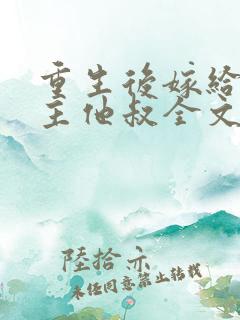 重生後嫁給
主他叔全文
陸拾亦
未任同意禁止转载